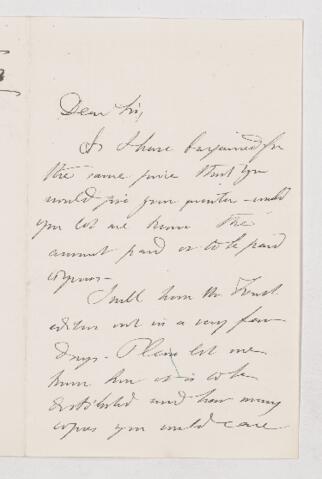 Dear Sir,
As I have bargained for
the same price that you
would give your printer - would
you let me know the
amount paid or to be paid
I will have the
edition out in a very few
days - Please let me
know how it is to be
distributed and how many
copies you would care